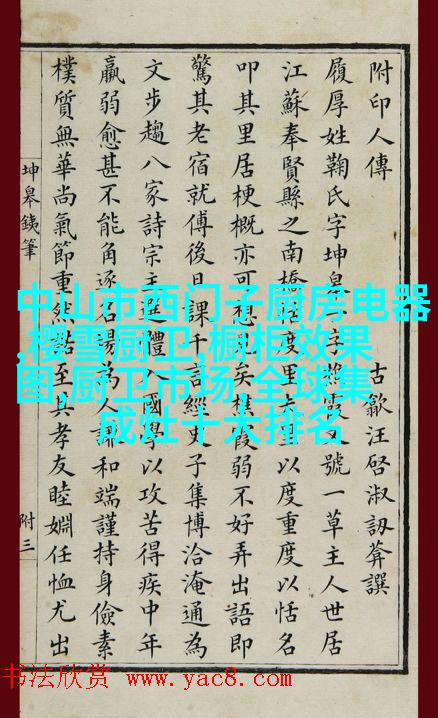 附印人傳
古歙汪啓淑訒葊譔
履厚姓鞠氏字坤皋一字霞又號一草主人世居
江蘇奉賢縣之南橋度里里以度重度以恬名
叩其里居梗概亦可想矣樵霞弱不好弄出語即
驚其老宿就傅後日課千言經史子集博洽淹通為
文步趨八家詩宗王體入國學以攻苦得疾中年
羸弱愈甚不能角逐名場為人謙和端謹持身儉素
樸質無華尚氣節重然諾至其孝友睦婣任恤尤出
坤皋鐵筆
附三
中山市西门子厨房电器
,樱雪厨卫,橱柜效果
图,厨卫市场,全球集
成灶十大排名
书法欣赏 www.yac8.com